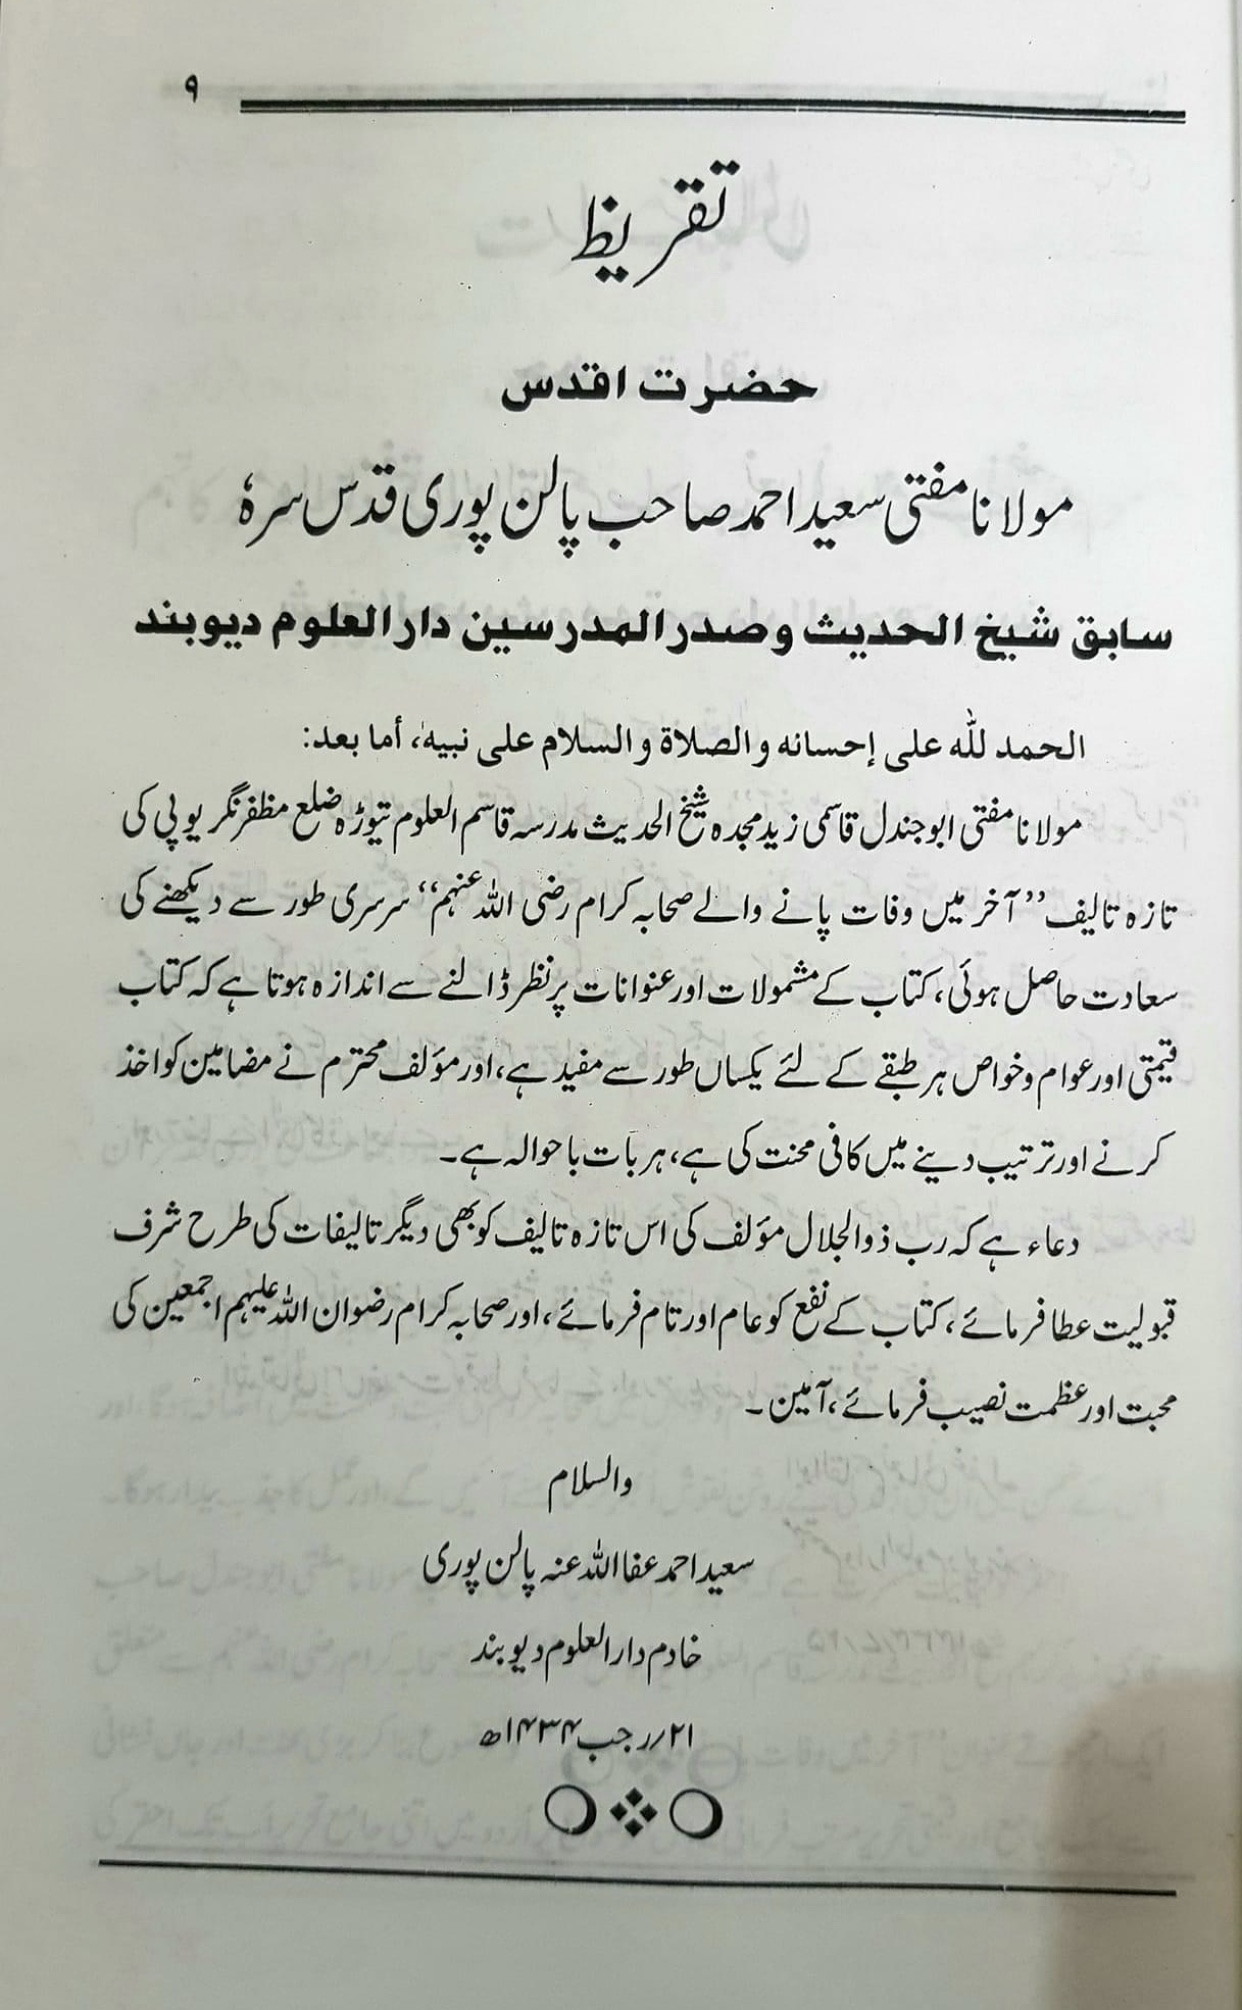 ۹
تقریظ
حضرت اقدس
مولانا مفتی سعید احمد صاحب پالن پوری قدس سرہٗ
سابق شیخ الحدیث و صدر المدرسین دار العلوم دیوبند
الحمد للّٰه على إحسانه والصلاة والسلام على نبيه، أما بعد:
مولانا مفتی ابوجندل قاسمی زید مجدہ شیخ الحدیث مدرسہ قاسم العلوم تیوڑہ ضلع مظفر نگر یوپی کی
تازہ تالیف ’’آخر میں وفات پانے والے صحابہ کرام رضی اللہ عنہم‘‘ سرسری طور سے دیکھنے کی
سعادت حاصل ہوئی، کتاب کے مشمولات اور عنوانات پر نظر ڈالنے سے اندازہ ہوتا ہے کہ کتاب
قیمتی اور عوام و خواص ہر طبقے کے لئے یکساں طور سے مفید ہے، اور مؤلف محترم نے مضامین کو اخذ
کرنے اور ترتیب دینے میں کافی محنت کی ہے، ہر بات باحوالہ ہے۔
دعاء ہے کہ رب ذوالجلال مؤلف کی اس تازہ تالیف کو بھی دیگر تالیفات کی طرح شرف
قبولیت عطا فرمائے، کتاب کے نفع کو عام اور تام فرمائے، اور صحابہ کرام رضوان اللہ علیہم اجمعین کی
محبت اور عظمت نصیب فرمائے، آمین۔
والسلام
سعید احمد عفا اللہ عنہ پالن پوری
خادم دار العلوم دیوبند
۲۱؍رجب ۱۴۳۴ھ